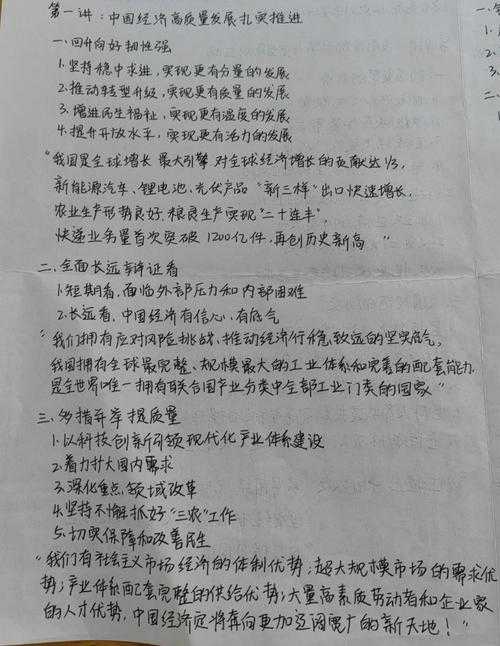 第一讲：中国经济高质量发展扎实推进
一.回升向好韧性强
1.坚持稳中求进，实现更有分量的发展
2.推动转型升级，实现更有质量的发展
3.增进民生福祉，实现更有温度的发展
4.提升开放水平，实现更有活力的发展
"我国是全球增长最大引擎对全球经济增长的贡献达1/3，
新能源汽车、锂电池、光伏产品"新三样"出口快速增长，
农业生产形势良好，粮食生产实现"二十连丰"，
快递业务量首次突破1200亿件，再创历史新高"
二.全面长远辩证看
1.短期看，面临外部压力和内部困难
2.长远看，中国经济有信心，有底气
"我们拥有应对风险挑战、推动经济行稳致远的坚实底气，
我国拥有全球最完整、规模最大的工业体系和完善的配套能力，
是全世界唯一拥有联合国产业分类中全部工业门类的国家"
三.多措并举提质量
1.以科技创新引领现代化产业体系建设
2.着力扩大国内需求
3.深化重点领域改革
4.坚持不懈抓好"三农"工作
5.切实保障和改善民生
"我们有社会主义市场经济的体制优势；超大规模市场的需求优
势；产业体系配套完整的供给优势；大量高素质劳动者和企业家
的人才优势，中国经济定将奔向更加辽阔宽广的新天地！"